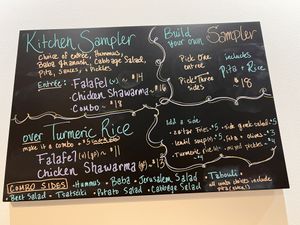 Kitchen Sampler
Choice of entrée, Hummus,
Baba Ghanoush, Cabbage Salad,
Pita, Sauces, + Pickles
Entrée:
Falafel (v) ~ $14
Chicken Shawarma ~ $16
Combo ~ $18
Build your own Sampler
Pick One entrée
Pick Three sides
includes
Pita + Rice
~ $18
over Turmeric Rice
make it a combo + $5
Falafel (v)(gf) ~ $11
Chicken Shawarma (gf) ~ $13
add a side
zaatar fries $5
side greek salad $5
lentil soup $5
$3
Turmeric rice $4
pickles $4
COMBO SIDES
• Hummus • Baba • Jerusalem Salad • Tabouli
• Beet Salad • Tzatziki • Potato Salad • Cabbage Salad
all combo sides include